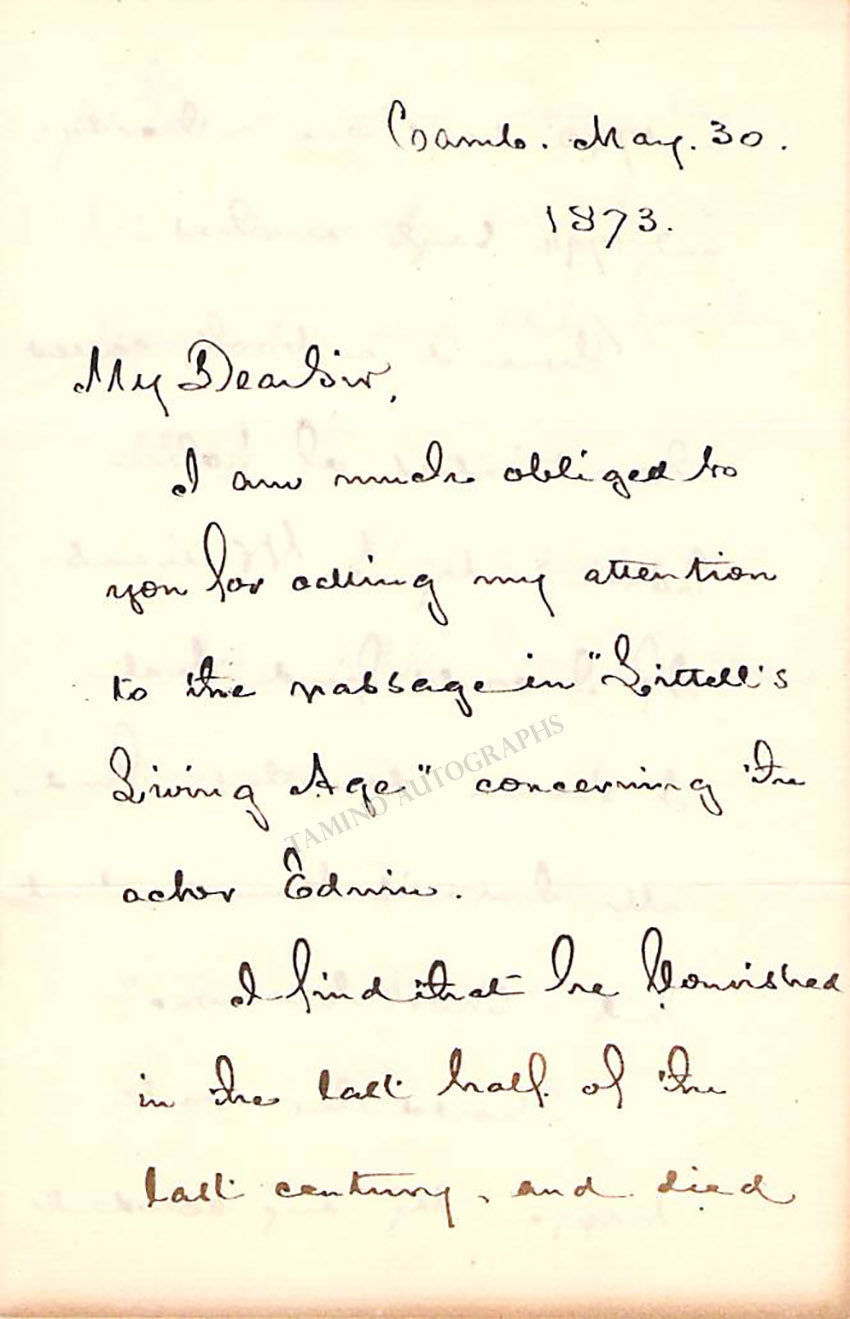 Camb. May. 30.
1873.
My Dear Sir,
I am much obliged to
you for calling my attention
to the passage in "Littell's
Living Age" concerning the
actor Edwin.
I find that he flourished
in the last half of the
last century, and died
TAMINO AUTOGRAPHS